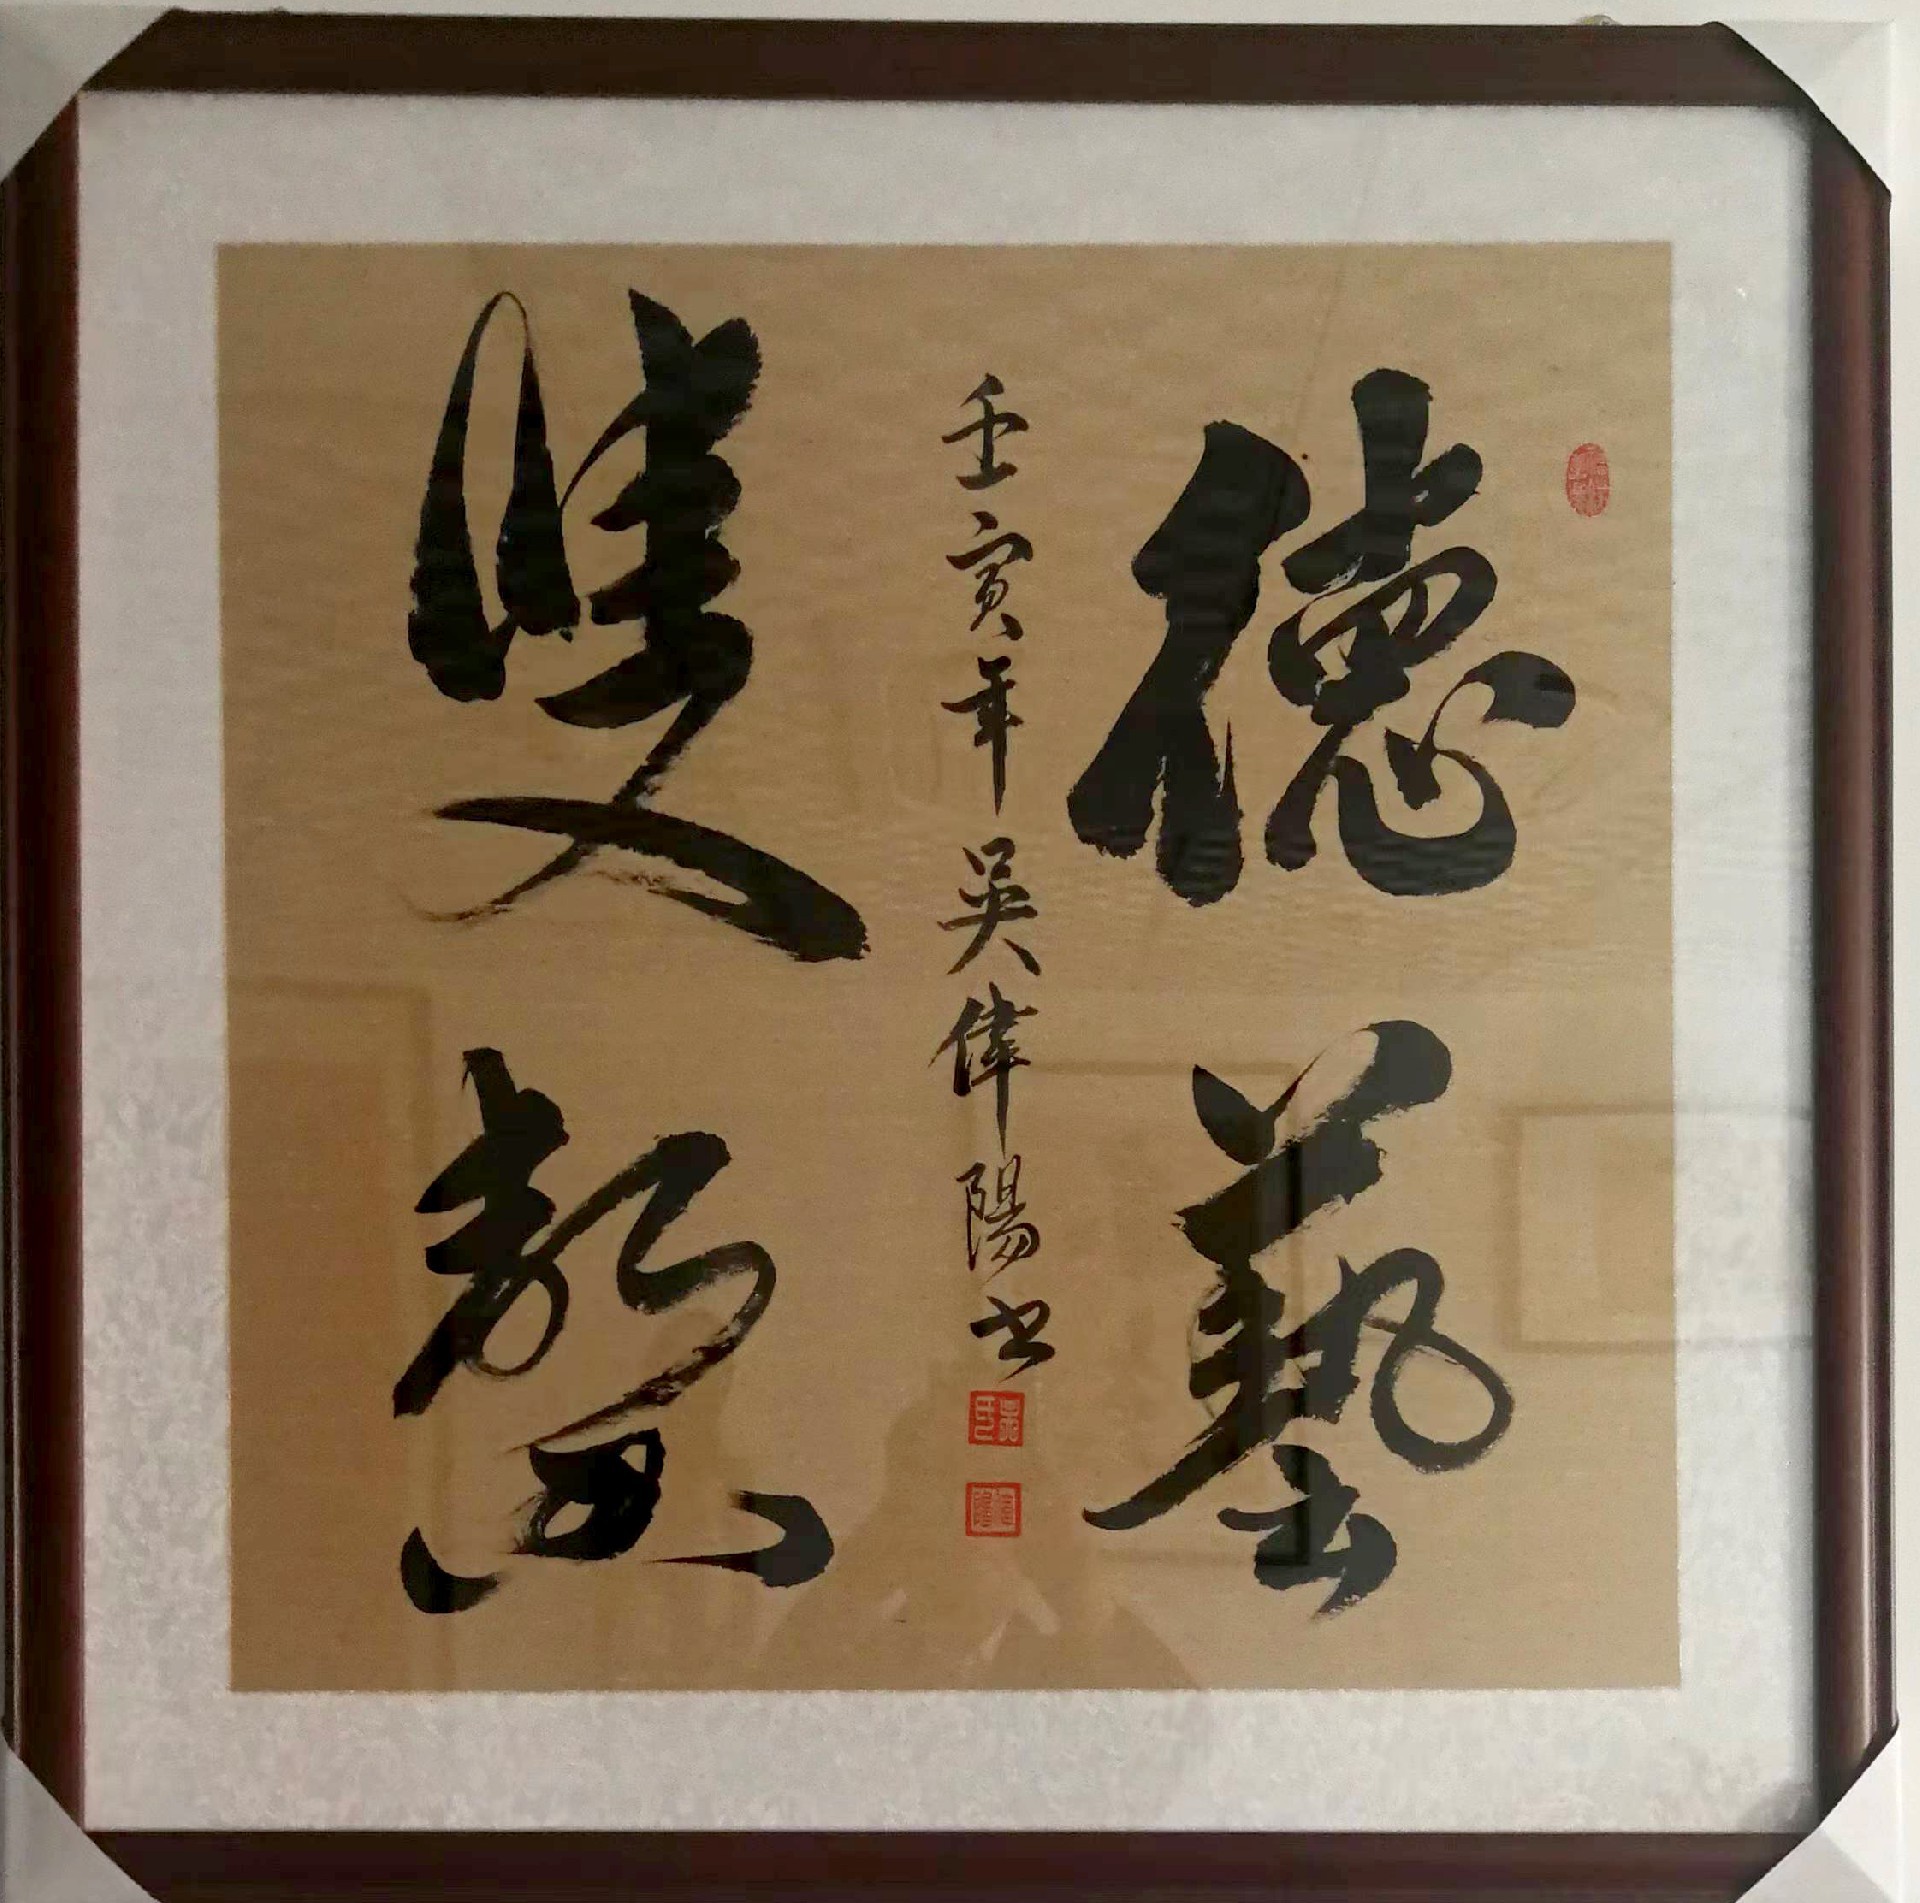 德藝
雙馨
壬寅年吳偉陽书
吳氏